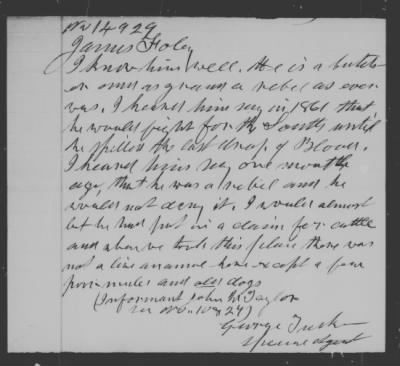 No 14929
James Foley
I know him well. He is a butch
er and as grand a rebel as ever
was. I heared him say in 1861 that
he would fight for the South until
he spilled the last drop of Blood.
I heared him say one month
ago, that he was a rebel and he
would not deny it. I would almost
bet he had put in a claim for cattle
and when we took this place there was
not a live animal here except a few
poor mules and old dogs
(Informant John M Taylor
in No. 10924)
George Tucker
Special Agent